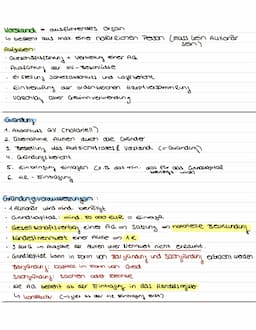 Vorstand = ausführendes Organ
↳ besteht aus min. einer natürlichen Person (muss kein Aktionär sein)
Aufgaben:
- Geschäftsführung + Vertretung einer AG
- Ausführung der HV-Beschlüsse
- Erstellung Jahresabschluss und Lagebericht
- Einberufung der ordentlichen Hauptversammlung
- Vorschlag über Gewinnverwendung
Gründung:
1. Abschluss GV (notariell)
2. Übernahme Aktien durch die Gründer
3. Bestellung des Aufsichtsrates & Vorstand (= Gründung)
4. Gründungsbericht
5. Einbringung Einlagen
6. HR - Eintragung
Gründungsvoraussetzungen:
- 1 Aktionär wird mind. benötigt
- Grundkapital: mind. 50 000 EUR
- Gesellschaftsvertrag einer AG = Satzung → notarielle Beurkundung
- Mindestnennwert einer Aktie = 1 €
- Grundkapital kann in Form von Bargründung und Sachgründung erbracht werden
Bargründung: Einlage in Form von Geld
Sachgründung: Sachen oder Rechte
- Die AG besteht ab der Eintragung in das Handelsregister
↳ konstitutiv